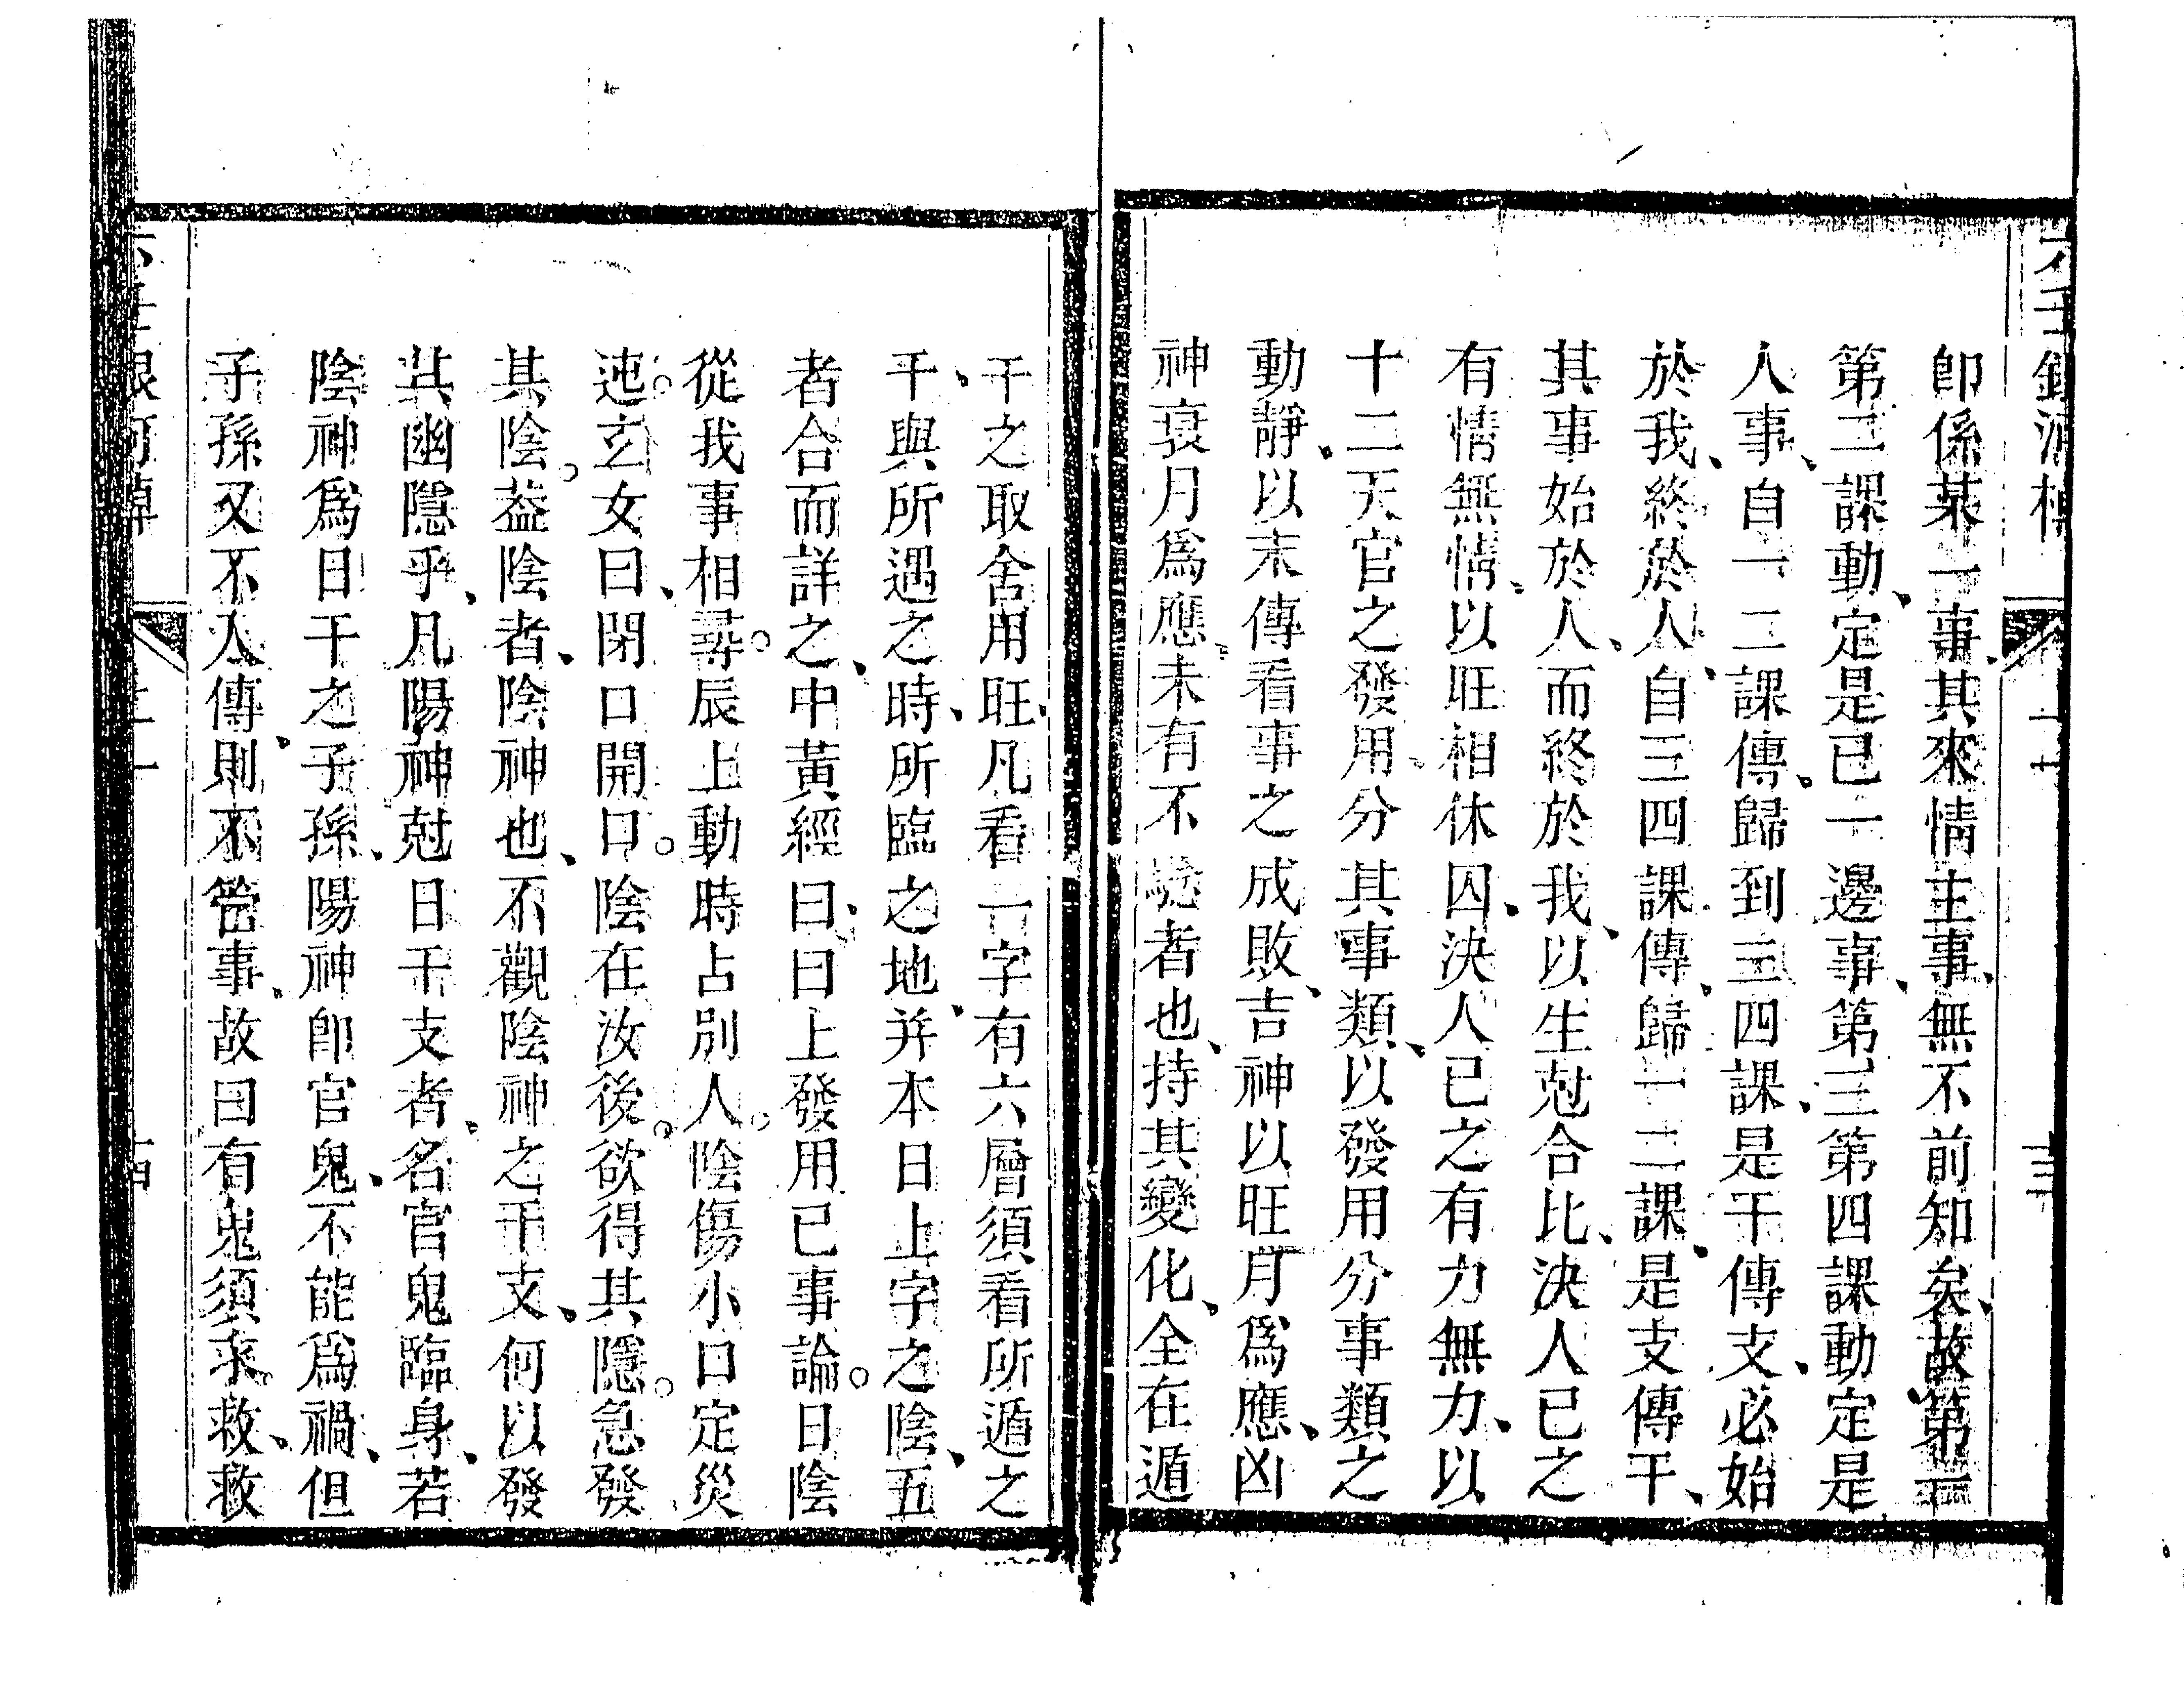 即係某一事、其來情主事、無不前知矣、故第一
第二課動、定是已一邊事、第三第四課動定是
人事、自一二課傳、歸到三四課、是干傳支、必始
於我、終於人、自三四課傳、歸一二課、是支傳干、
其事始於人、而終於我、以生尅合比、決人已之
有情無情、以旺相休囚、決人已之有力無力、以
十二天官之發用、分其事類、以發用分事類之
動靜、以末傳看事之成敗、吉神以旺月爲應、凶
神衰月爲應、未有不驗者也、持其變化、全在遁
干之取舍用旺、凡看一字有六層須看所遁之
干、與所遇之時、所臨之地、并本日上字之陰、五
者合而詳之、中黃經曰、日上發用已事論。日陰
從我事相尋。辰上動時占別人。陰傷小口定災
迍。玄女曰、閉口開口。陰在汝後。欲得其隱。急發
其陰。葢陰者、陰神也、不觀陰神之干支、何以發
其幽隱乎、凡陽神尅日干支者、名官鬼臨身、若
陰神爲日干之子孫、陽神卽官鬼、不能爲禍、但
子孫又不入傳、則不管事、故曰有鬼須求救、救